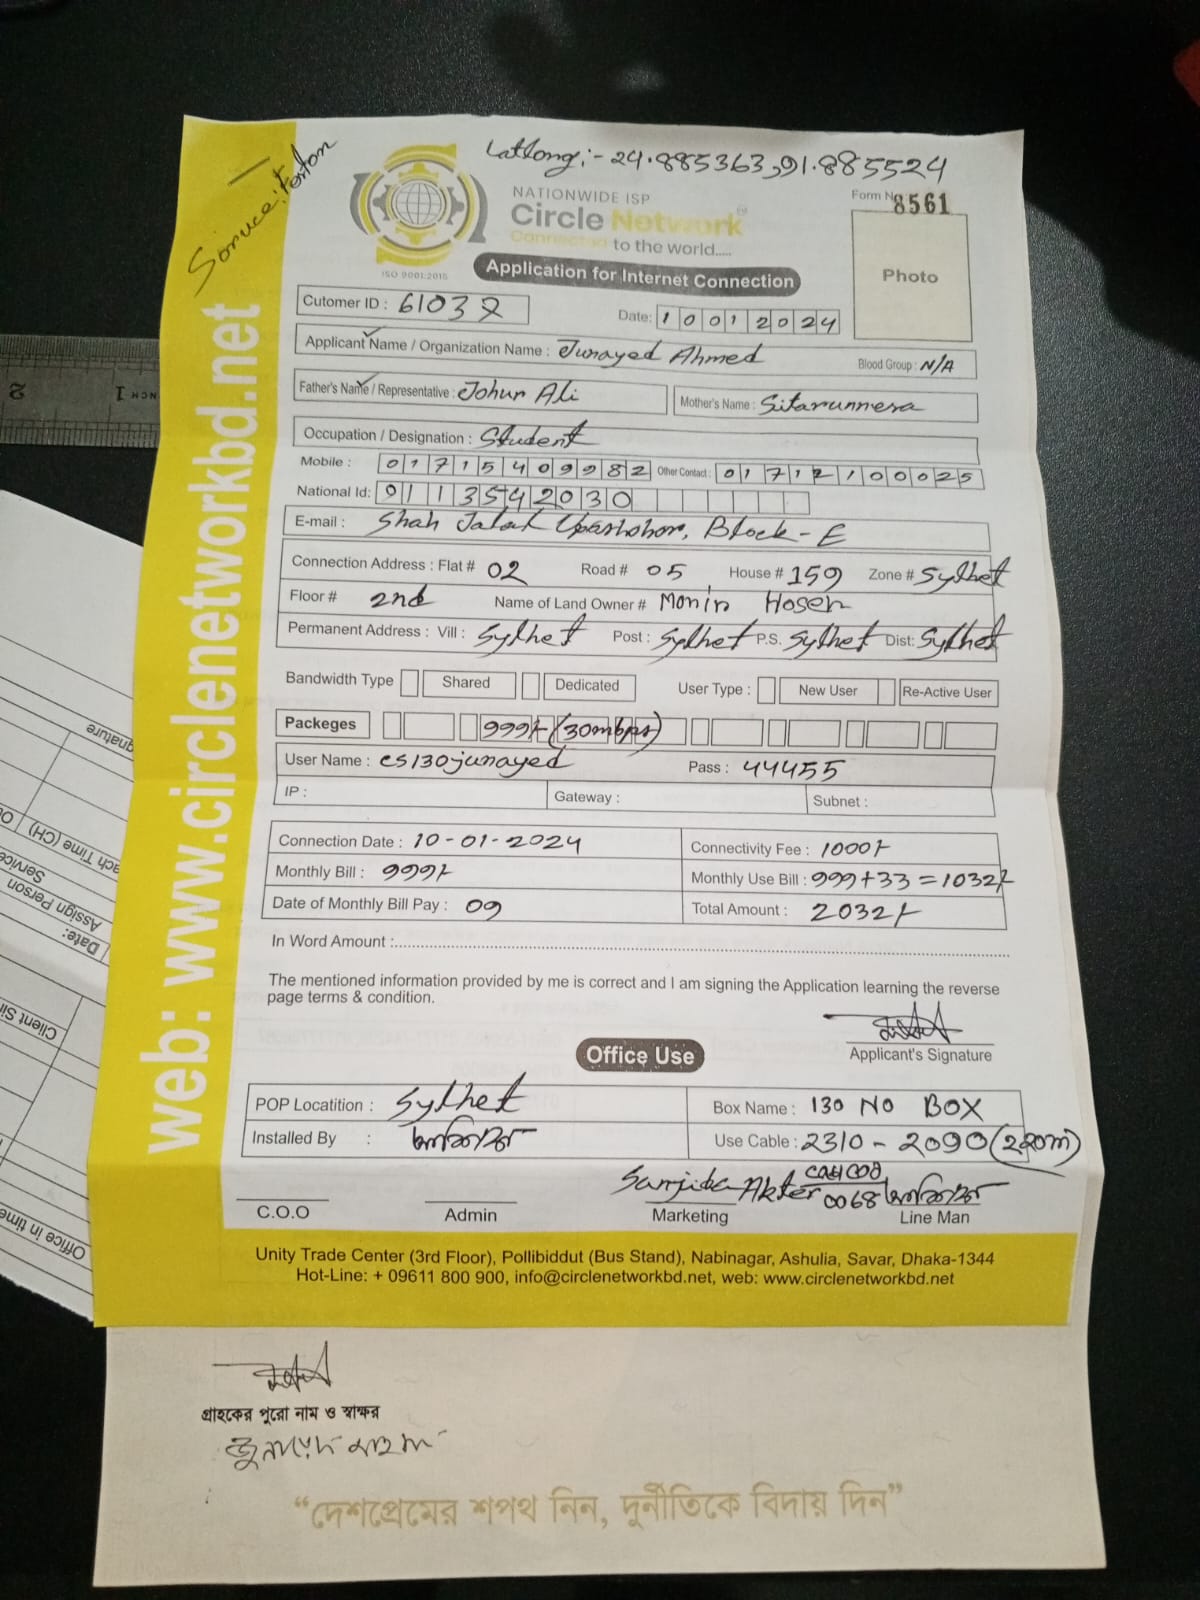 Latlong:- 24.885363,91.885524
NATIONWIDE ISP
Form No 8561
Circle Network
Connected to the world.....
ISO 9001:2015
Photo
Application for Internet Connection
Cutomer ID : 61032
Date: 10012024
Applicant Name / Organization Name : Junayed Ahmed
Blood Group : N/A
Father's Name / Representative : Johur Ali
Mother's Name : Sitarunnesa
Occupation / Designation : Student
Mobile : 01715409982 Other Contact : 01712100025
National Id: 9113542030
E-mail : Shah Jalal Uposhohor, Block-E
Connection Address : Flat # 02 Road # 05 House # 159 Zone # Sylhet
Floor # 2nd Name of Land Owner # Monin Hosen
Permanent Address : Vill : Sylhet Post : Sylhet P.S. Sylhet Dist: Sylhet
Bandwidth Type Shared Dedicated User Type : New User Re-Active User
Packeges 999/- (30mbps)
User Name : cs130junayed Pass : 44455
IP : Gateway : Subnet :
Connection Date : 10-01-2024 Connectivity Fee : 1000/-
Monthly Bill : 999/- Monthly Use Bill : 999+33 = 1032/-
Date of Monthly Bill Pay : 09 Total Amount : 2032/-
In Word Amount :
The mentioned information provided by me is correct and I am signing the Application learning the reverse
page terms & condition.
Applicant's Signature
Office Use
POP Locatition : Sylhet Box Name : 130 NO BOX
Installed By : Use Cable : 2310 - 2090 (220m)
Sanjida Akter 0068
C.O.O Admin Marketing Line Man
Unity Trade Center (3rd Floor), Pollibiddut (Bus Stand), Nabinagar, Ashulia, Savar, Dhaka-1344
Hot-Line: + 09611 800 900, info@circlenetworkbd.net, web: www.circlenetworkbd.net
web: www.circlenetworkbd.net
গ্রাহকের পুরো নাম ও স্বাক্ষর
জুনায়েদ আহমদ
“দেশপ্রেমের শপথ নিন, দুর্নীতিকে বিদায় দিন”
Assign Person
Date:
Client Si
Office in time
2
1
INCH